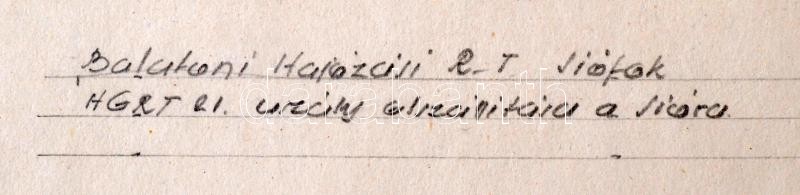 Balatoni Hajózási R-T Siófok
HGRT 21. uszály elszállítása a Sióra